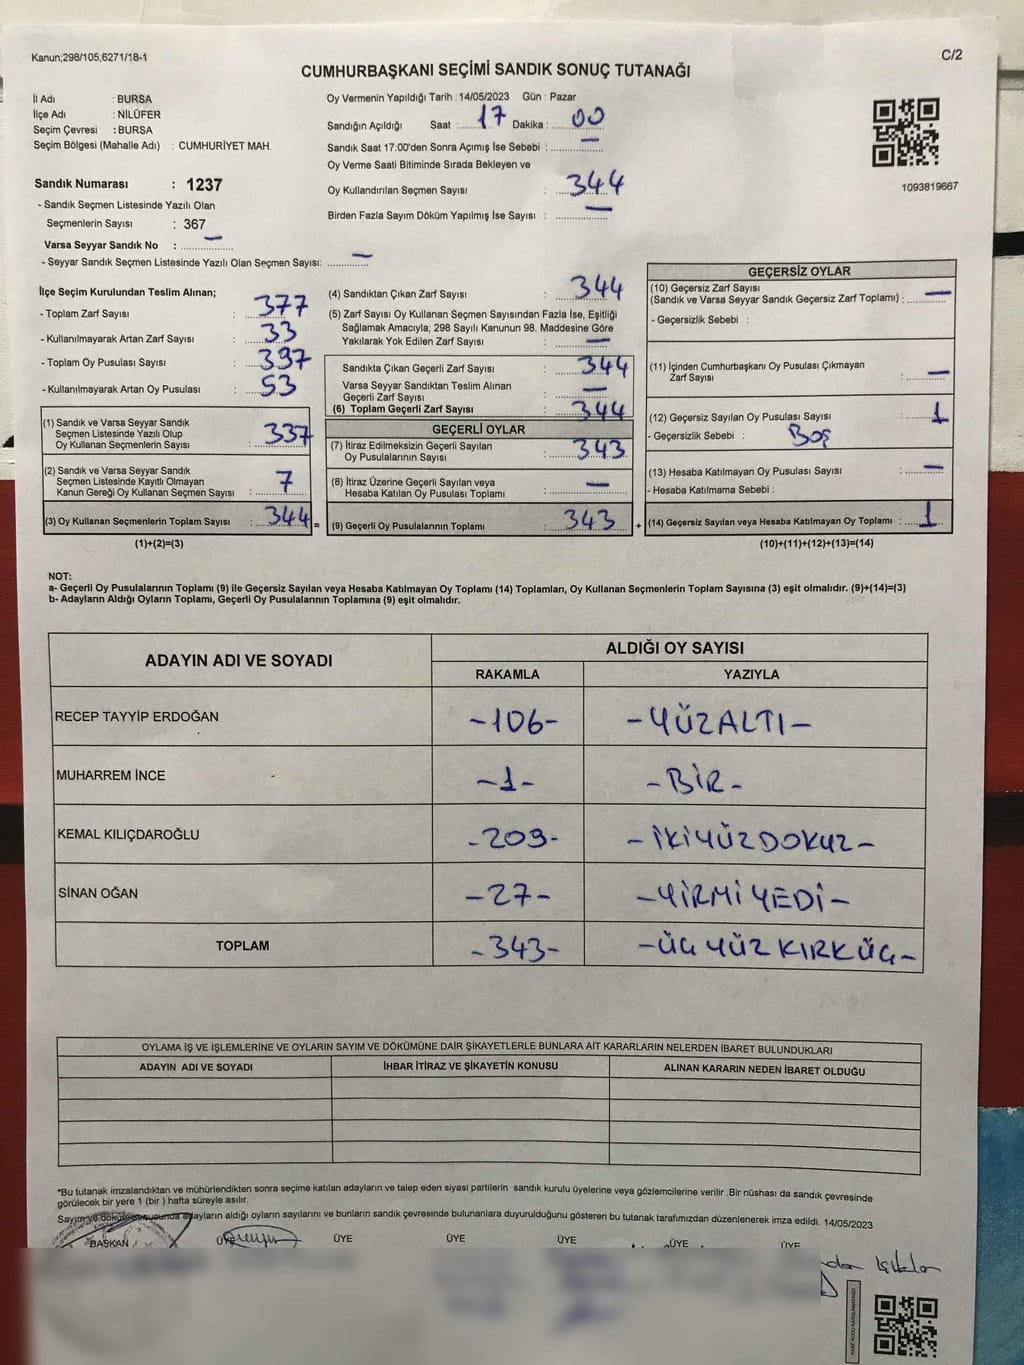 Kanun;298/105,6271/18-1
C/2
CUMHURBAŞKANI SEÇİMİ SANDIK SONUÇ TUTANAĞI
İl Adı : BURSA
İlçe Adı : NİLÜFER
Seçim Çevresi : BURSA
Seçim Bölgesi (Mahalle Adı) : CUMHURİYET MAH.
Sandık Numarası : 1237
- Sandık Seçmen Listesinde Yazılı Olan
Seçmenlerin Sayısı : 367
Varsa Seyyar Sandık No : —
- Seyyar Sandık Seçmen Listesinde Yazılı Olan Seçmen Sayısı: —
Oy Vermenin Yapıldığı Tarih : 14/05/2023 Gün : Pazar
Sandığın Açıldığı Saat : 17 Dakika : 00
Sandık Saat 17:00'den Sonra Açımış İse Sebebi : —
Oy Verme Saati Bitiminde Sırada Bekleyen ve
Oy Kullandırılan Seçmen Sayısı : 344
Birden Fazla Sayım Döküm Yapılmış İse Sayısı : —
1093819667
İlçe Seçim Kurulundan Teslim Alınan;
- Toplam Zarf Sayısı : 377
- Kullanılmayarak Artan Zarf Sayısı : 33
- Toplam Oy Pusulası Sayısı : 397
- Kullanılmayarak Artan Oy Pusulası : 53
(1) Sandık ve Varsa Seyyar Sandık
Seçmen Listesinde Yazılı Olup
Oy Kullanan Seçmenlerin Sayısı : 337
(2) Sandık ve Varsa Seyyar Sandık
Seçmen Listesinde Kayıtlı Olmayan
Kanun Gereği Oy Kullanan Seçmen Sayısı : 7
(3) Oy Kullanan Seçmenlerin Toplam Sayısı : 344 =
(1)+(2)=(3)
(4) Sandıktan Çıkan Zarf Sayısı : 344
(5) Zarf Sayısı Oy Kullanan Seçmen Sayısından Fazla İse, Eşitliği
Sağlamak Amacıyla; 298 Sayılı Kanunun 98. Maddesine Göre
Yakılarak Yok Edilen Zarf Sayısı : —
Sandıkta Çıkan Geçerli Zarf Sayısı : 344
Varsa Seyyar Sandıktan Teslim Alınan
Geçerli Zarf Sayısı : —
(6) Toplam Geçerli Zarf Sayısı : 344
GEÇERLİ OYLAR
(7) İtiraz Edilmeksizin Geçerli Sayılan
Oy Pusulalarının Sayısı : 343
(8) İtiraz Üzerine Geçerli Sayılan veya
Hesaba Katılan Oy Pusulası Toplamı : —
(9) Geçerli Oy Pusulalarının Toplamı : 343 +
GEÇERSİZ OYLAR
(10) Geçersiz Zarf Sayısı
(Sandık ve Varsa Seyyar Sandık Geçersiz Zarf Toplamı) : —
- Geçersizlik Sebebi :
(11) İçinden Cumhurbaşkanı Oy Pusulası Çıkmayan
Zarf Sayısı : —
(12) Geçersiz Sayılan Oy Pusulası Sayısı : 1
- Geçersizlik Sebebi : Boş
(13) Hesaba Katılmayan Oy Pusulası Sayısı : —
- Hesaba Katılmama Sebebi :
(14) Geçersiz Sayılan veya Hesaba Katılmayan Oy Toplamı : 1
(10)+(11)+(12)+(13)=(14)
NOT:
a- Geçerli Oy Pusulalarının Toplamı (9) ile Geçersiz Sayılan veya Hesaba Katılmayan Oy Toplamı (14) Toplamları, Oy Kullanan Seçmenlerin Toplam Sayısına (3) eşit olmalıdır. (9)+(14)=(3)
b- Adayların Aldığı Oyların Toplamı, Geçerli Oy Pusulalarının Toplamına (9) eşit olmalıdır.
ADAYIN ADI VE SOYADI
ALDIĞI OY SAYISI
RAKAMLA YAZIYLA
RECEP TAYYİP ERDOĞAN -106- -YÜZALTI-
MUHARREM İNCE -1- -BİR-
KEMAL KILIÇDAROĞLU -209- -İKİYÜZDOKUZ-
SİNAN OĞAN -27- -YİRMİYEDİ-
TOPLAM -343- -ÜÇ YÜZ KIRK ÜÇ-
OYLAMA İŞ VE İŞLEMLERİNE VE OYLARIN SAYIM VE DÖKÜMÜNE DAİR ŞİKAYETLERLE BUNLARA AİT KARARLARIN NELERDEN İBARET BULUNDUKLARI
ADAYIN ADI VE SOYADI İHBAR İTİRAZ VE ŞİKAYETİN KONUSU ALINAN KARARIN NEDEN İBARET OLDUĞU
*Bu tutanak imzalandıktan ve mühürlendikten sonra seçime katılan adayların ve talep eden siyasi partilerin sandık kurulu üyelerine veya gözlemcilerine verilir .Bir nüshası da sandık çevresinde
görülecek bir yere 1 (bir ) hafta süreyle asılır.
Sayım ve döküm sonucunda adayların aldığı oyların sayılarını ve bunların sandık çevresinde bulunanlara duyurulduğunu gösteren bu tutanak tarafımızdan düzenlenerek imza edildi. 14/05/2023
BAŞKAN ÜYE ÜYE ÜYE ÜYE ÜYE ÜYE